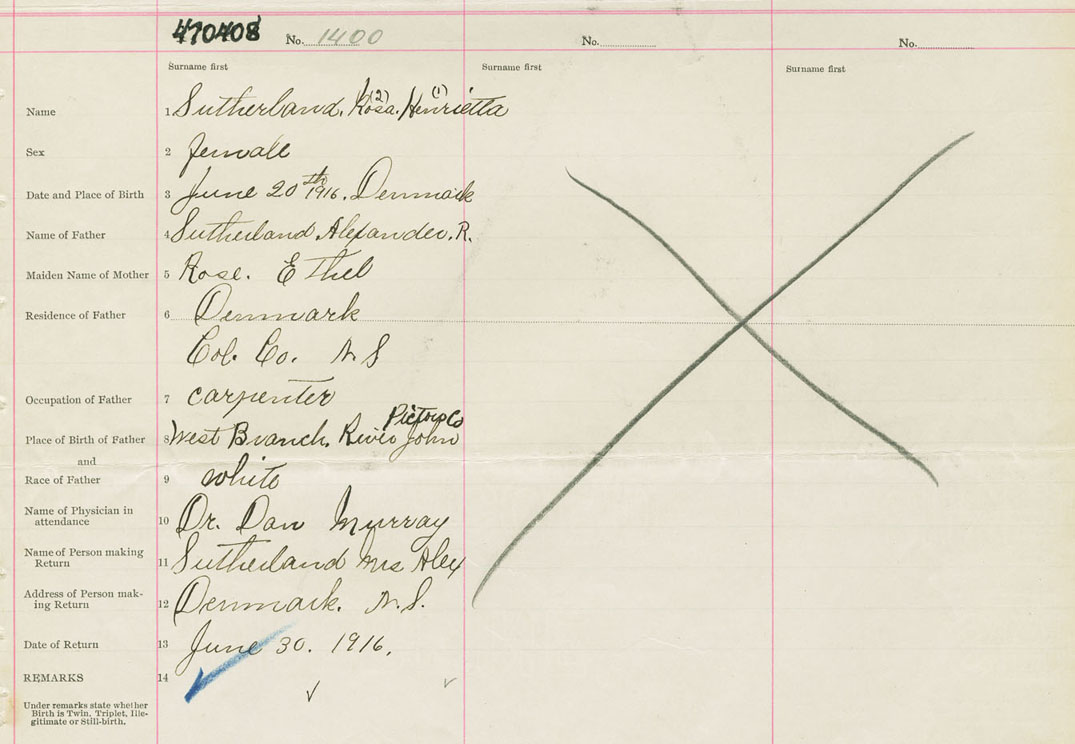 470408 No. 1400 No. No.
Surname first Surname first Surname first
Name 1 Sutherland. Rosa. (2) Henrietta (1)
Sex 2 female
Date and Place of Birth 3 June 20th 1916. Denmark
Name of Father 4 Sutherland Alexander. R.
Maiden Name of Mother 5 Rose. Ethel
Residence of Father 6 Denmark
Col. Co. N S
Occupation of Father 7 carpenter
Pictou Co
Place of Birth of Father 8 West Branch. River John
and
Race of Father 9 white
Name of Physician in
attendance 10 Dr. Dan Murray
Name of Person making
Return 11 Sutherland Mrs Alex
Address of Person mak-
ing Return 12 Denmark. N.S.
Date of Return 13 June 30. 1916.
REMARKS 14
Under remarks state whether
Birth is Twin, Triplet, Ille-
gitimate or Still-birth.